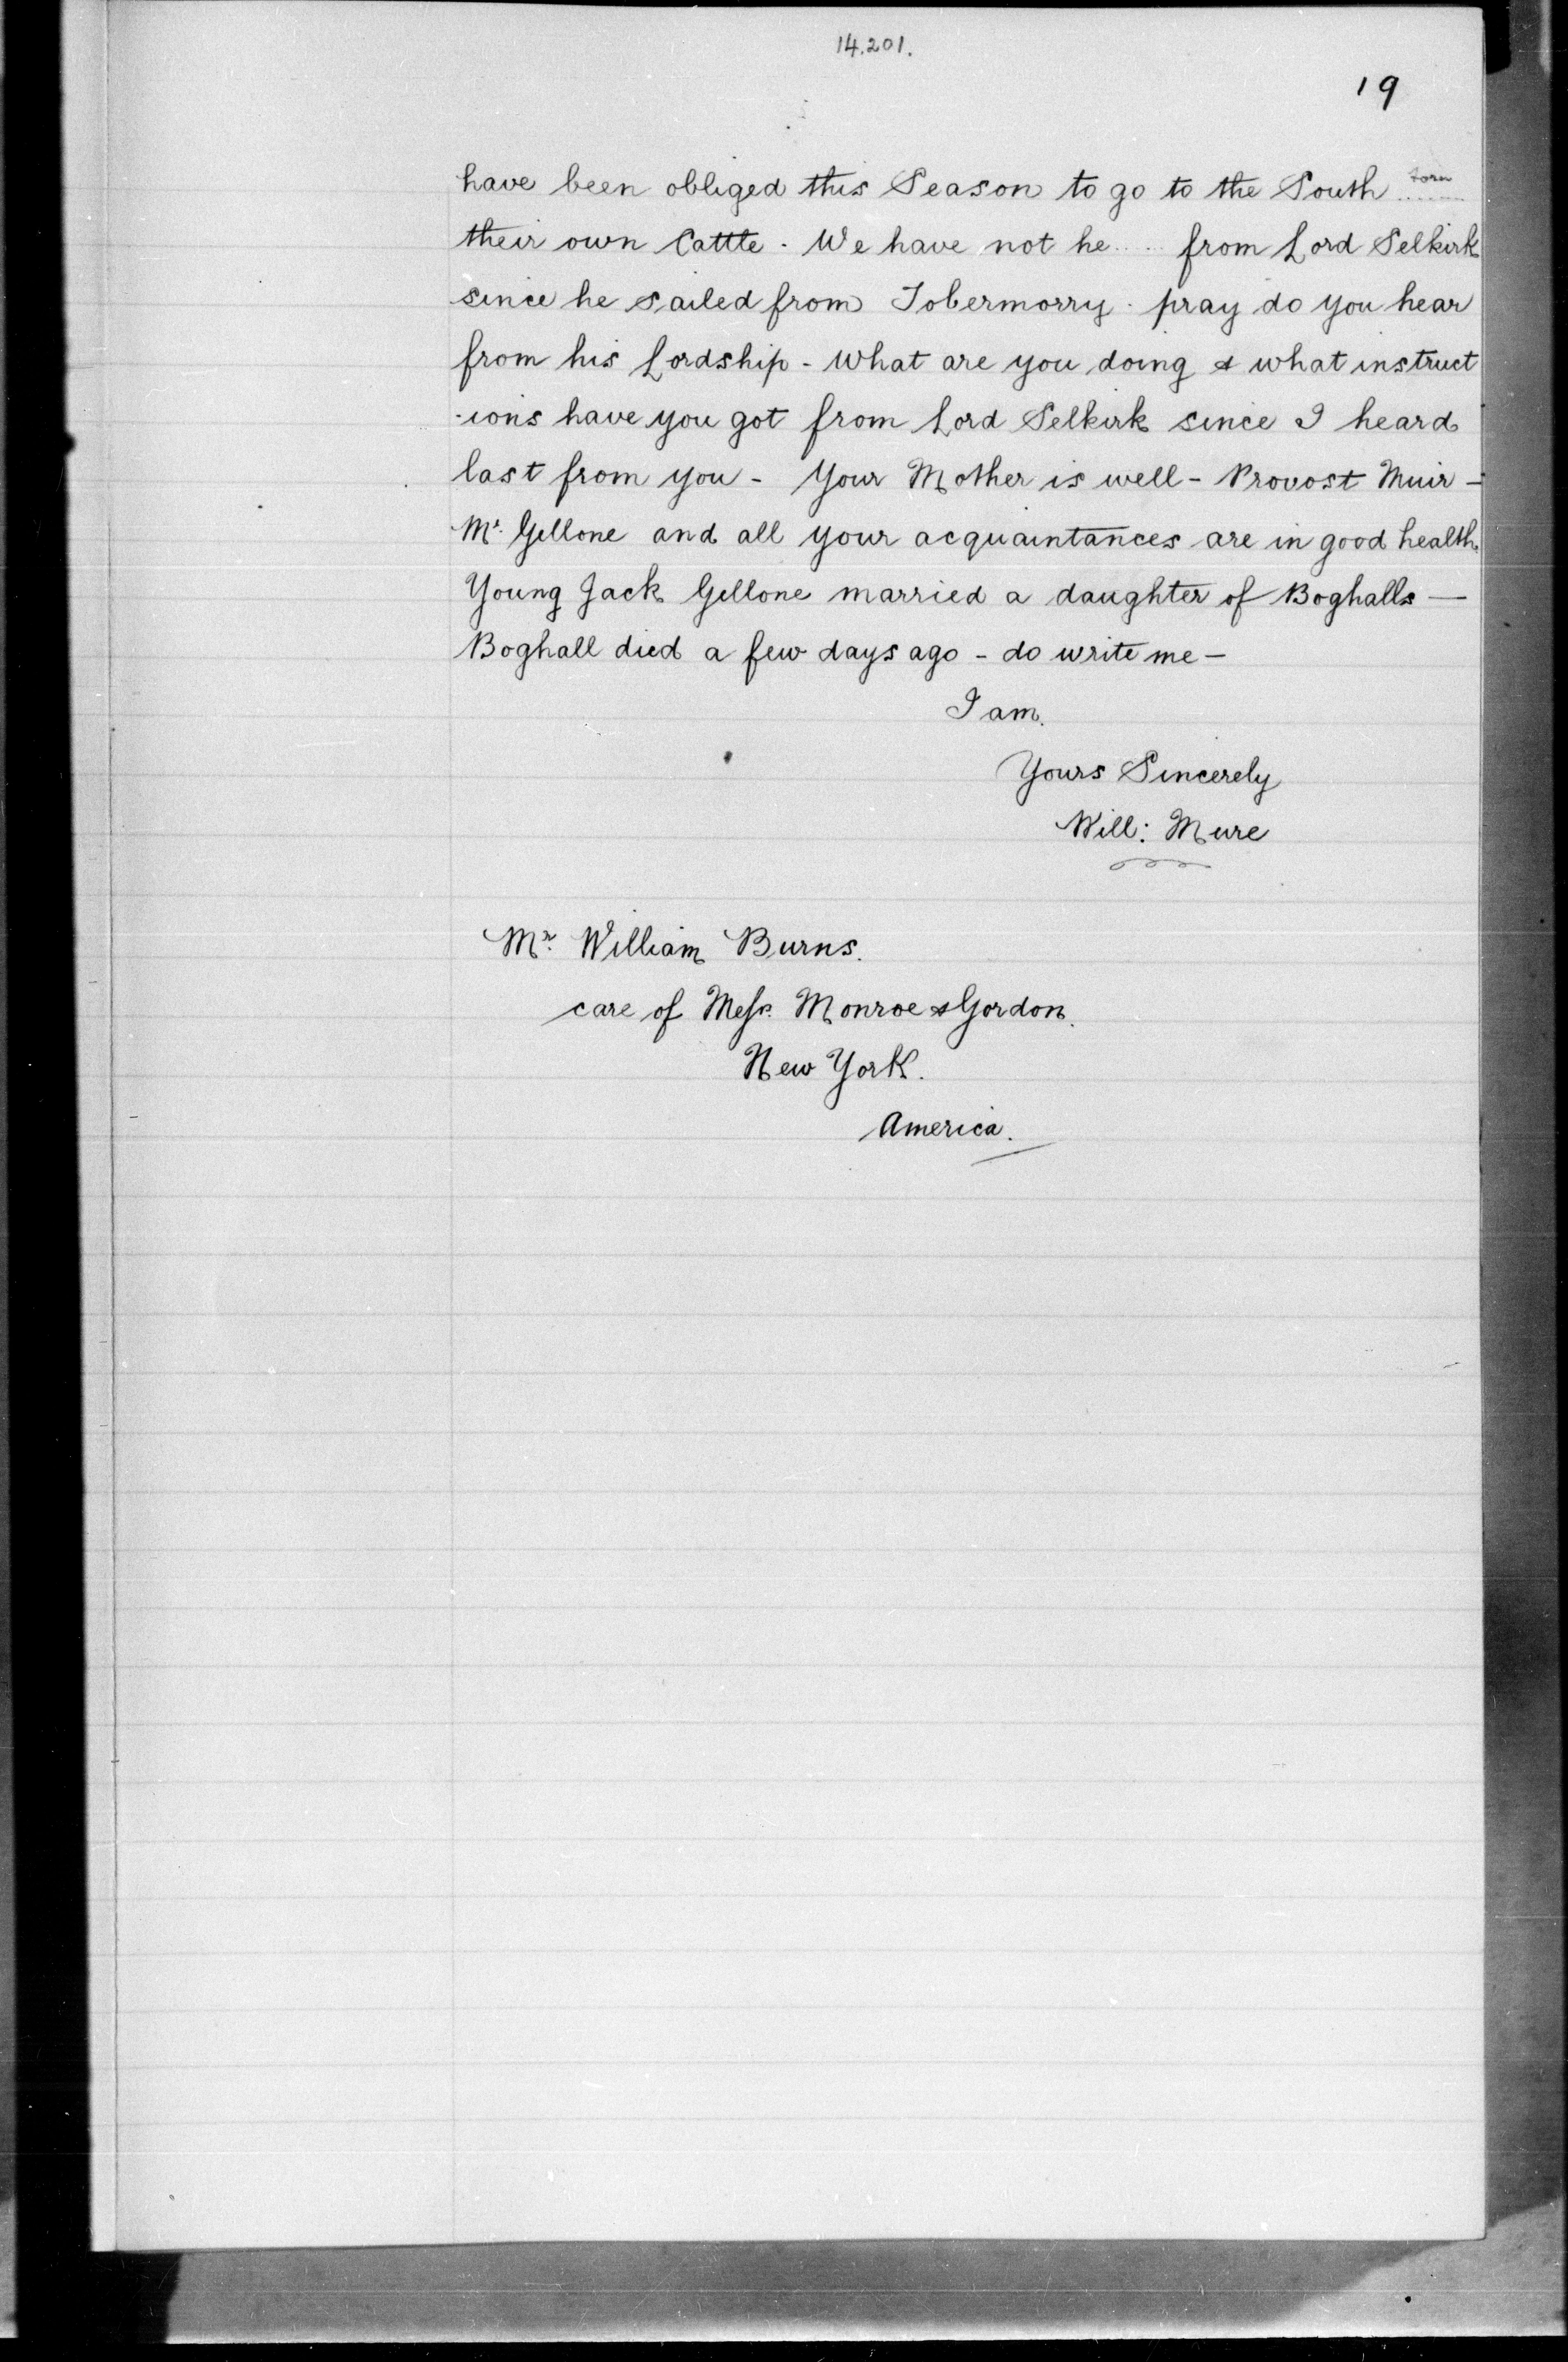 14.201.
19
have been obliged this Season to go to the South ...torn...
their own Cattle. We have not he.... from Lord Selkirk
since he sailed from Tobermorry. pray do you hear
from his Lordship - What are you doing & what instruct
-ions have you got from Lord Selkirk since I heard
last from you - Your Mother is well - Provost Muir -
Mr. Gellone and all your acquaintances are in good health.
Young Jack Gellone married a daughter of Boghalls —
Boghall died a few days ago - do write me -
I am.
Yours Sincerely
Will: Mure
Mr. William Burns.
care of Mess. Monroe & Gordon.
New York.
America.